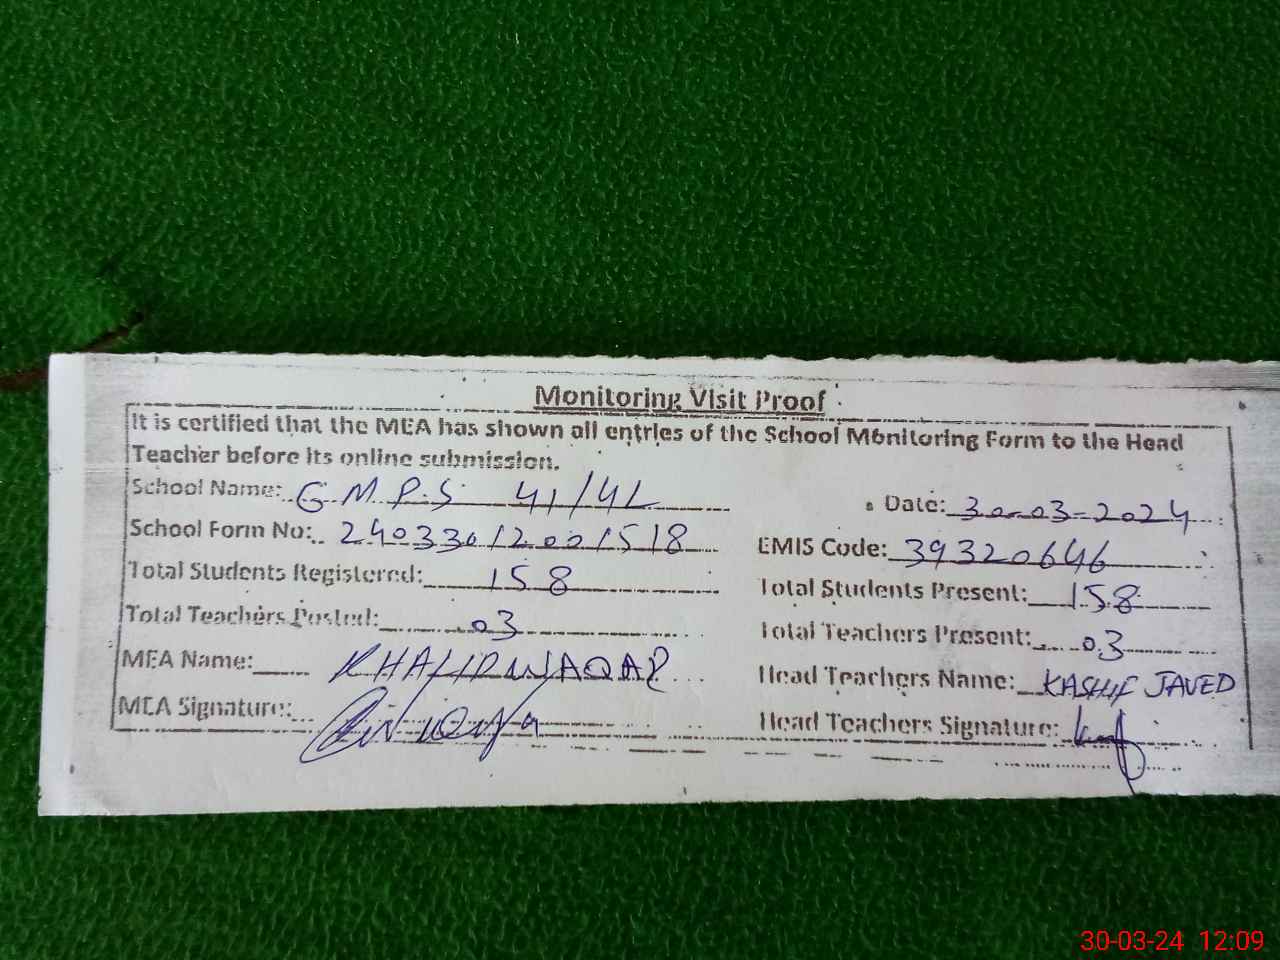 Monitoring Visit Proof
It is certified that the MEA has shown all entries of the School Monitoring Form to the Head
Teacher before its online submission.
School Name: G M P S 41/4L Date: 30-03-2024
School Form No: 240330120001518 EMIS Code: 39320646
Total Students Registered: 158 Total Students Present: 158
Total Teachers Posted: 03 Total Teachers Present: 03
MEA Name: KHALID WAQAR Head Teachers Name: KASHIF JAVED
MEA Signature: Head Teachers Signature:
30-03-24 12:09